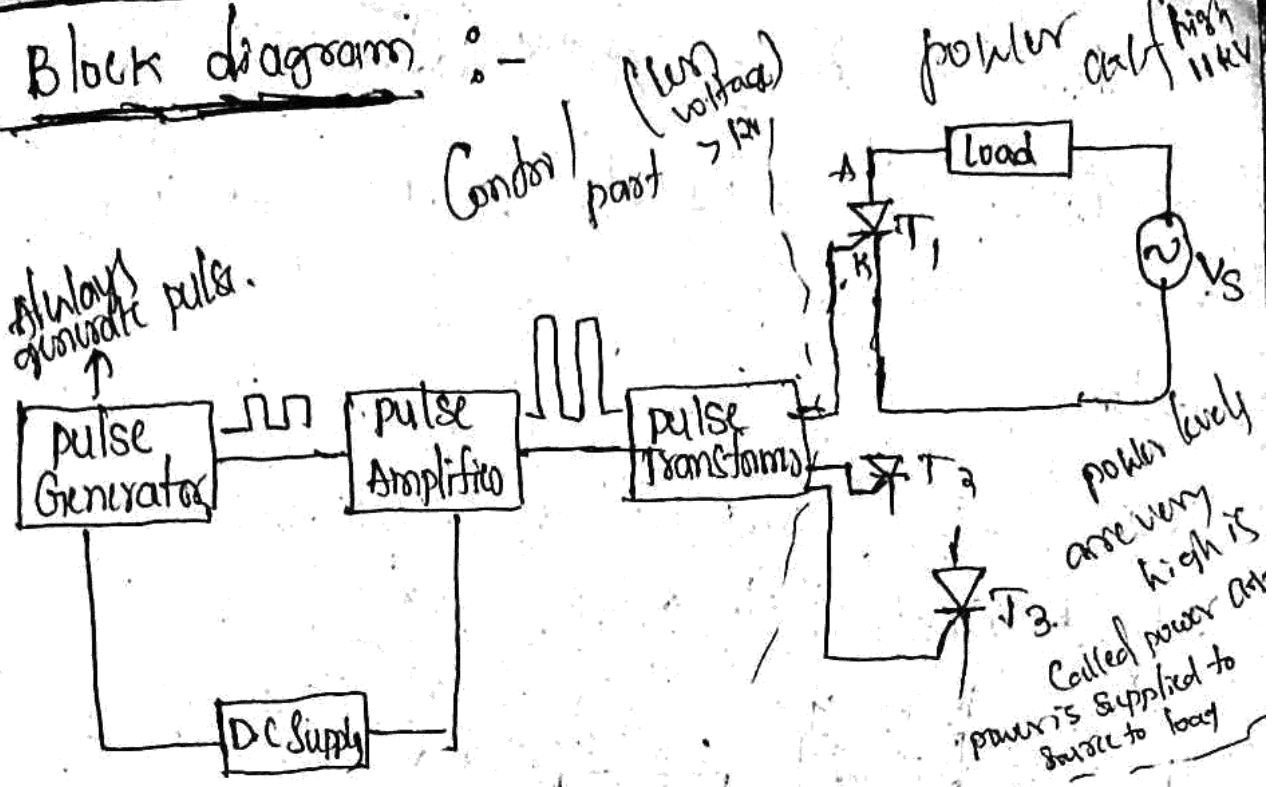 Block diagram :-
Control part (less voltage) > 12v
power ckt high 11 KV
Always
generate pulse.
Load
A
T1
K
VS
pulse
Generator
pulse
Amplifier
pulse
Transforms
T2
T3.
DC Supply
power levels
are very
high is
Called power
power is supplied to
source to load